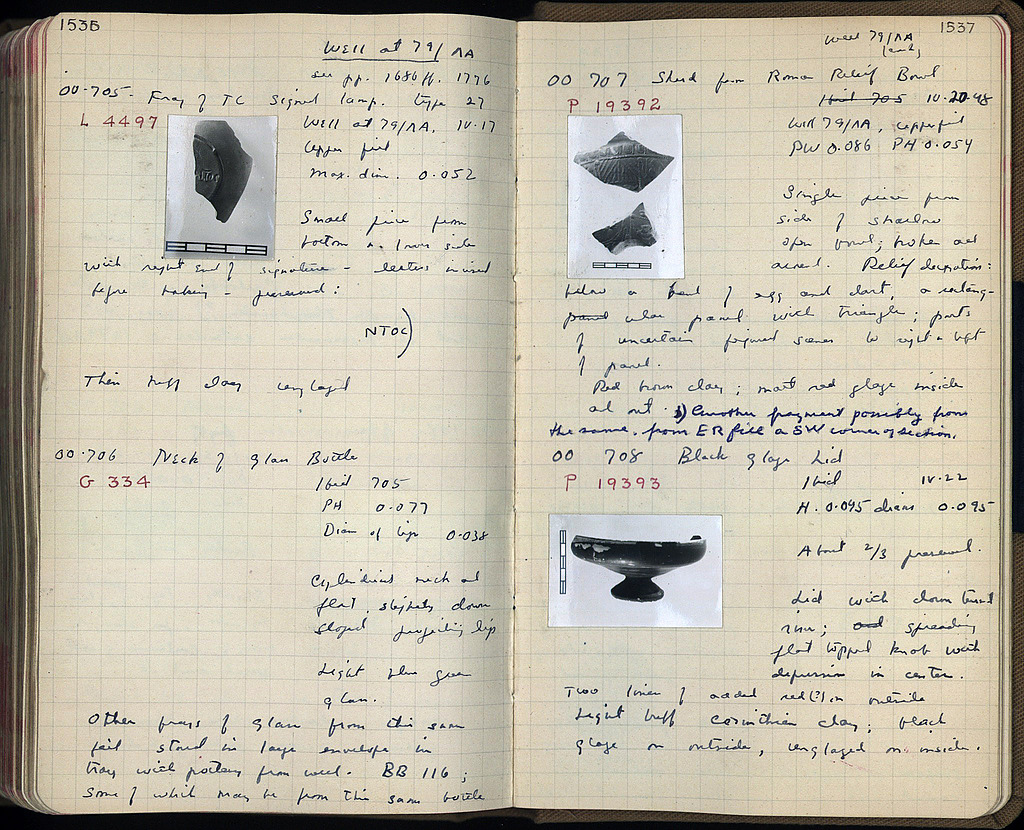 1536
Well at 79/ΛΑ
see pp. 1686 ff. 1776
OO·705· Frag of TC Signed lamp. Type 27
L 4497
Well at 79/ΛΑ, IV·17
Upper fill
Max. dim. 0.052
Small piece from
bottom and lower side
with right end of signature – letters incised
before baking – preserved:
NTOC)
Thin buff clay unglazed
OO·706 Neck of Glass Bottle
G 334
Ibid 705
PH 0.077
Diam of lip 0.038
Cylindrical neck and
flat, slightly down
sloped projecting lip
Light blue green
glass.
Other frags of glass from this same
fill stored in large envelope in
tray with pottery from well. BB 116;
Some of which may be from this same bottle
1537
Well 79/ΛΑ
(cont)
OO 707 Sherd from Roman Relief Bowl
P 19392
Ibid 705 IV·20·48
Well 79/ΛΑ, upper fill
PW 0.086 PH 0.054
Single piece from
side of shallow
open bowl; broken all
around. Relief decoration:
below a band of egg and dart, a rectang-
panel ular panel with triangle; parts
of uncertain figured scenes to right & left
of panel.
Red brown clay; matt red glaze inside
and out. b) Another fragment possibly from
the same, from ER fill a SW corner of section.
OO 708 Black Glaze Lid
P 19393
Ibid IV·22
H. 0.045 diam 0.095
About 2/3 preserved.
Lid with down turned
rim; and spreading
flat topped knob with
depression in center.
Two lines of added red(?) on outside
Light buff Corinthian clay; black
glaze on outside, unglazed on inside.